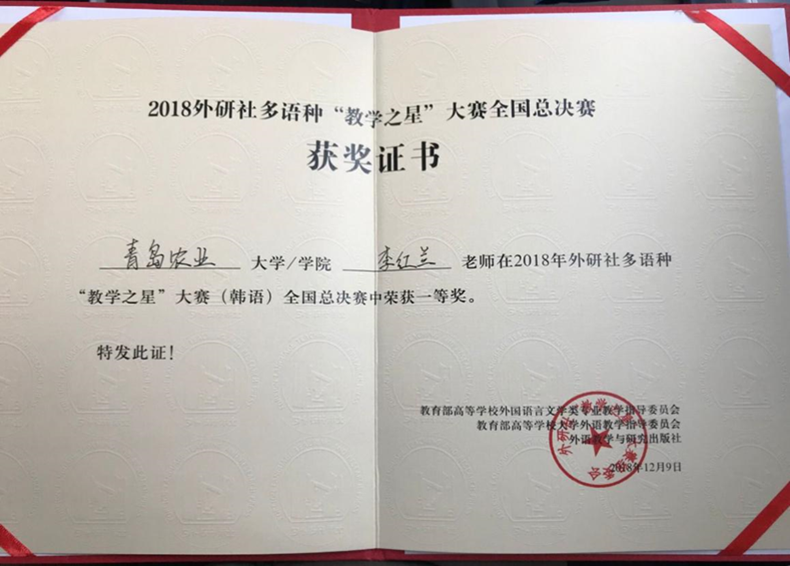 2018外研社多语种“教学之星”大赛全国总决赛
获奖证书
青岛农业 大学/学院 李红兰 老师在2018年外研社多语种
“教学之星”大赛（韩语）全国总决赛中荣获一等奖。
特发此证！
教育部高等学校外国语言文学类专业教学指导委员会
教育部高等学校大学外语教学指导委员会
外语教学与研究出版社
2018年12月9日